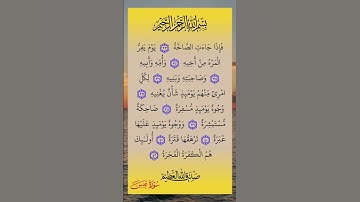 بِسْمِ اللَّهِ الرَّحْمَٰنِ الرَّحِيمِ
فَإِذَا جَاءَتِ الصَّاخَّةُ ۝٣٣ يَوْمَ يَفِرُّ
الْمَرْءُ مِنْ أَخِيهِ ۝٣٤ وَأُمِّهِ وَأَبِيهِ
۝٣٥ وَصَاحِبَتِهِ وَبَنِيهِ ۝٣٦ لِكُلِّ
امْرِئٍ مِنْهُمْ يَوْمَئِذٍ شَأْنٌ يُغْنِيهِ ۝٣٧
وُجُوهٌ يَوْمَئِذٍ مُسْفِرَةٌ ۝٣٨ ضَاحِكَةٌ
مُسْتَبْشِرَةٌ ۝٣٩ وَوُجُوهٌ يَوْمَئِذٍ عَلَيْهَا
غَبَرَةٌ ۝٤٠ تَرْهَقُهَا قَتَرَةٌ ۝٤١ أُولَٰئِكَ
هُمُ الْكَفَرَةُ الْفَجَرَةُ ۝٤٢
صَدَقَ اللَّهُ الْعَظِيمُ
سُورَةُ عَبَسَ